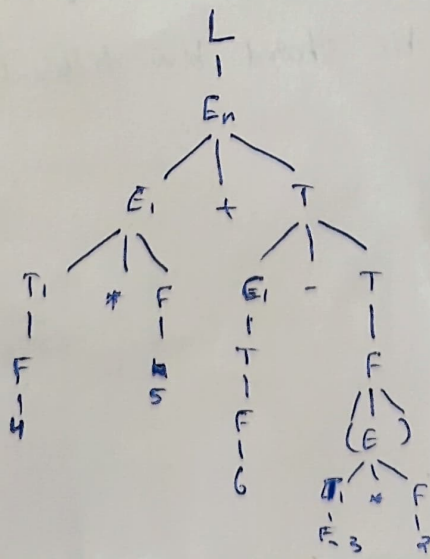 L
En
E1 + T
T1 * F E1 - T
F 5 T F
4 F ( E )
6 T1 * F
F - 3